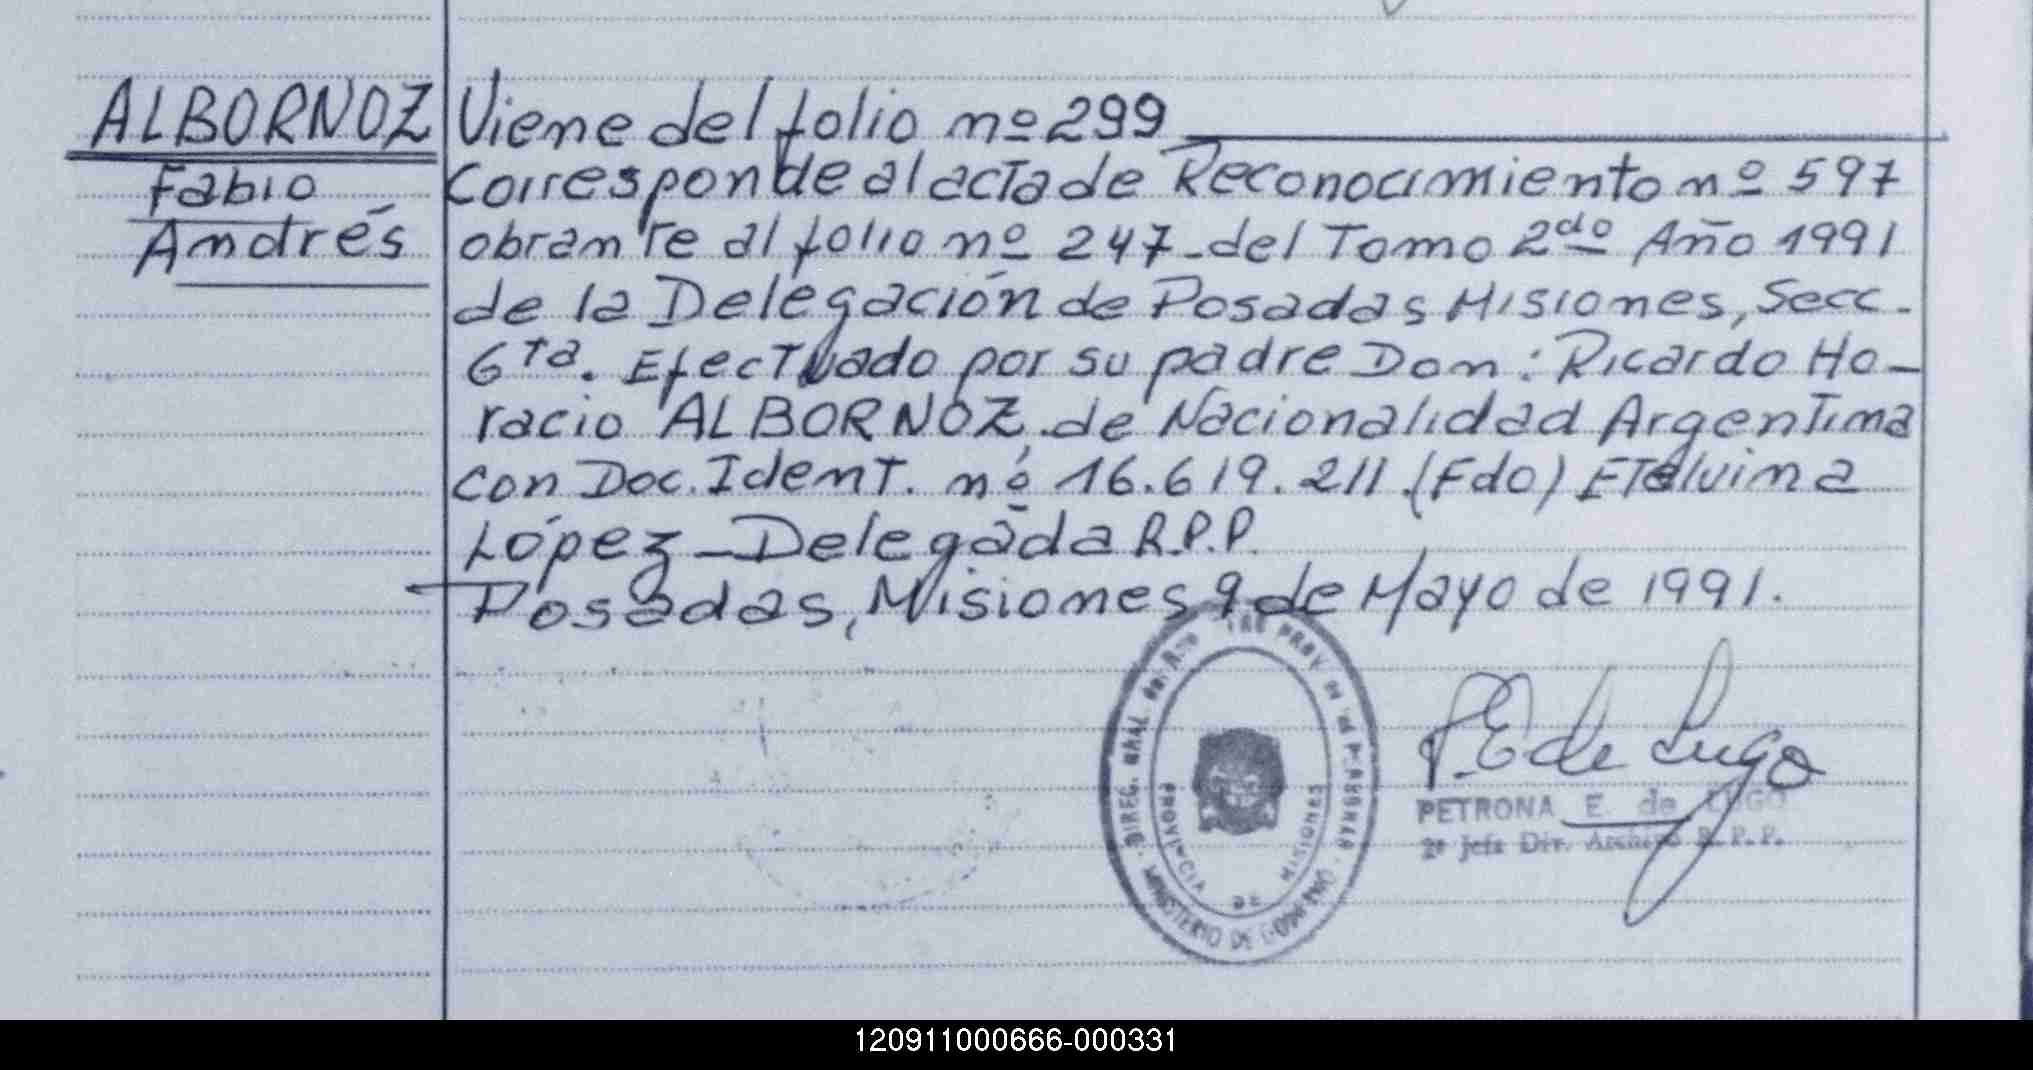 ALBORNOZ
Fabio
Andrés
Viene del folio nº 299
Corresponde al acta de Reconocimiento nº 597
obrante al folio nº 247 - del Tomo 2do Año 1991
de la Delegación de Posadas Misiones, Secc.
6ta. Efectuado por su padre Don: Ricardo Ho-
racio ALBORNOZ, de Nacionalidad Argentina
con Doc. Ident. nº 16.619.211. (Fdo) Etelvina
López - Delegada R.P.P.
Posadas, Misiones 9 de Mayo de 1991.
DIREC. GRAL. PROV. DE LAS PERSONAS
MINISTERIO DE GOBIERNO
PROVINCIA DE MISIONES
P. E de Lugo
PETRONA E. de LUGO
2º Jefa Div. Archivo R. P. P.
120911000666-000331